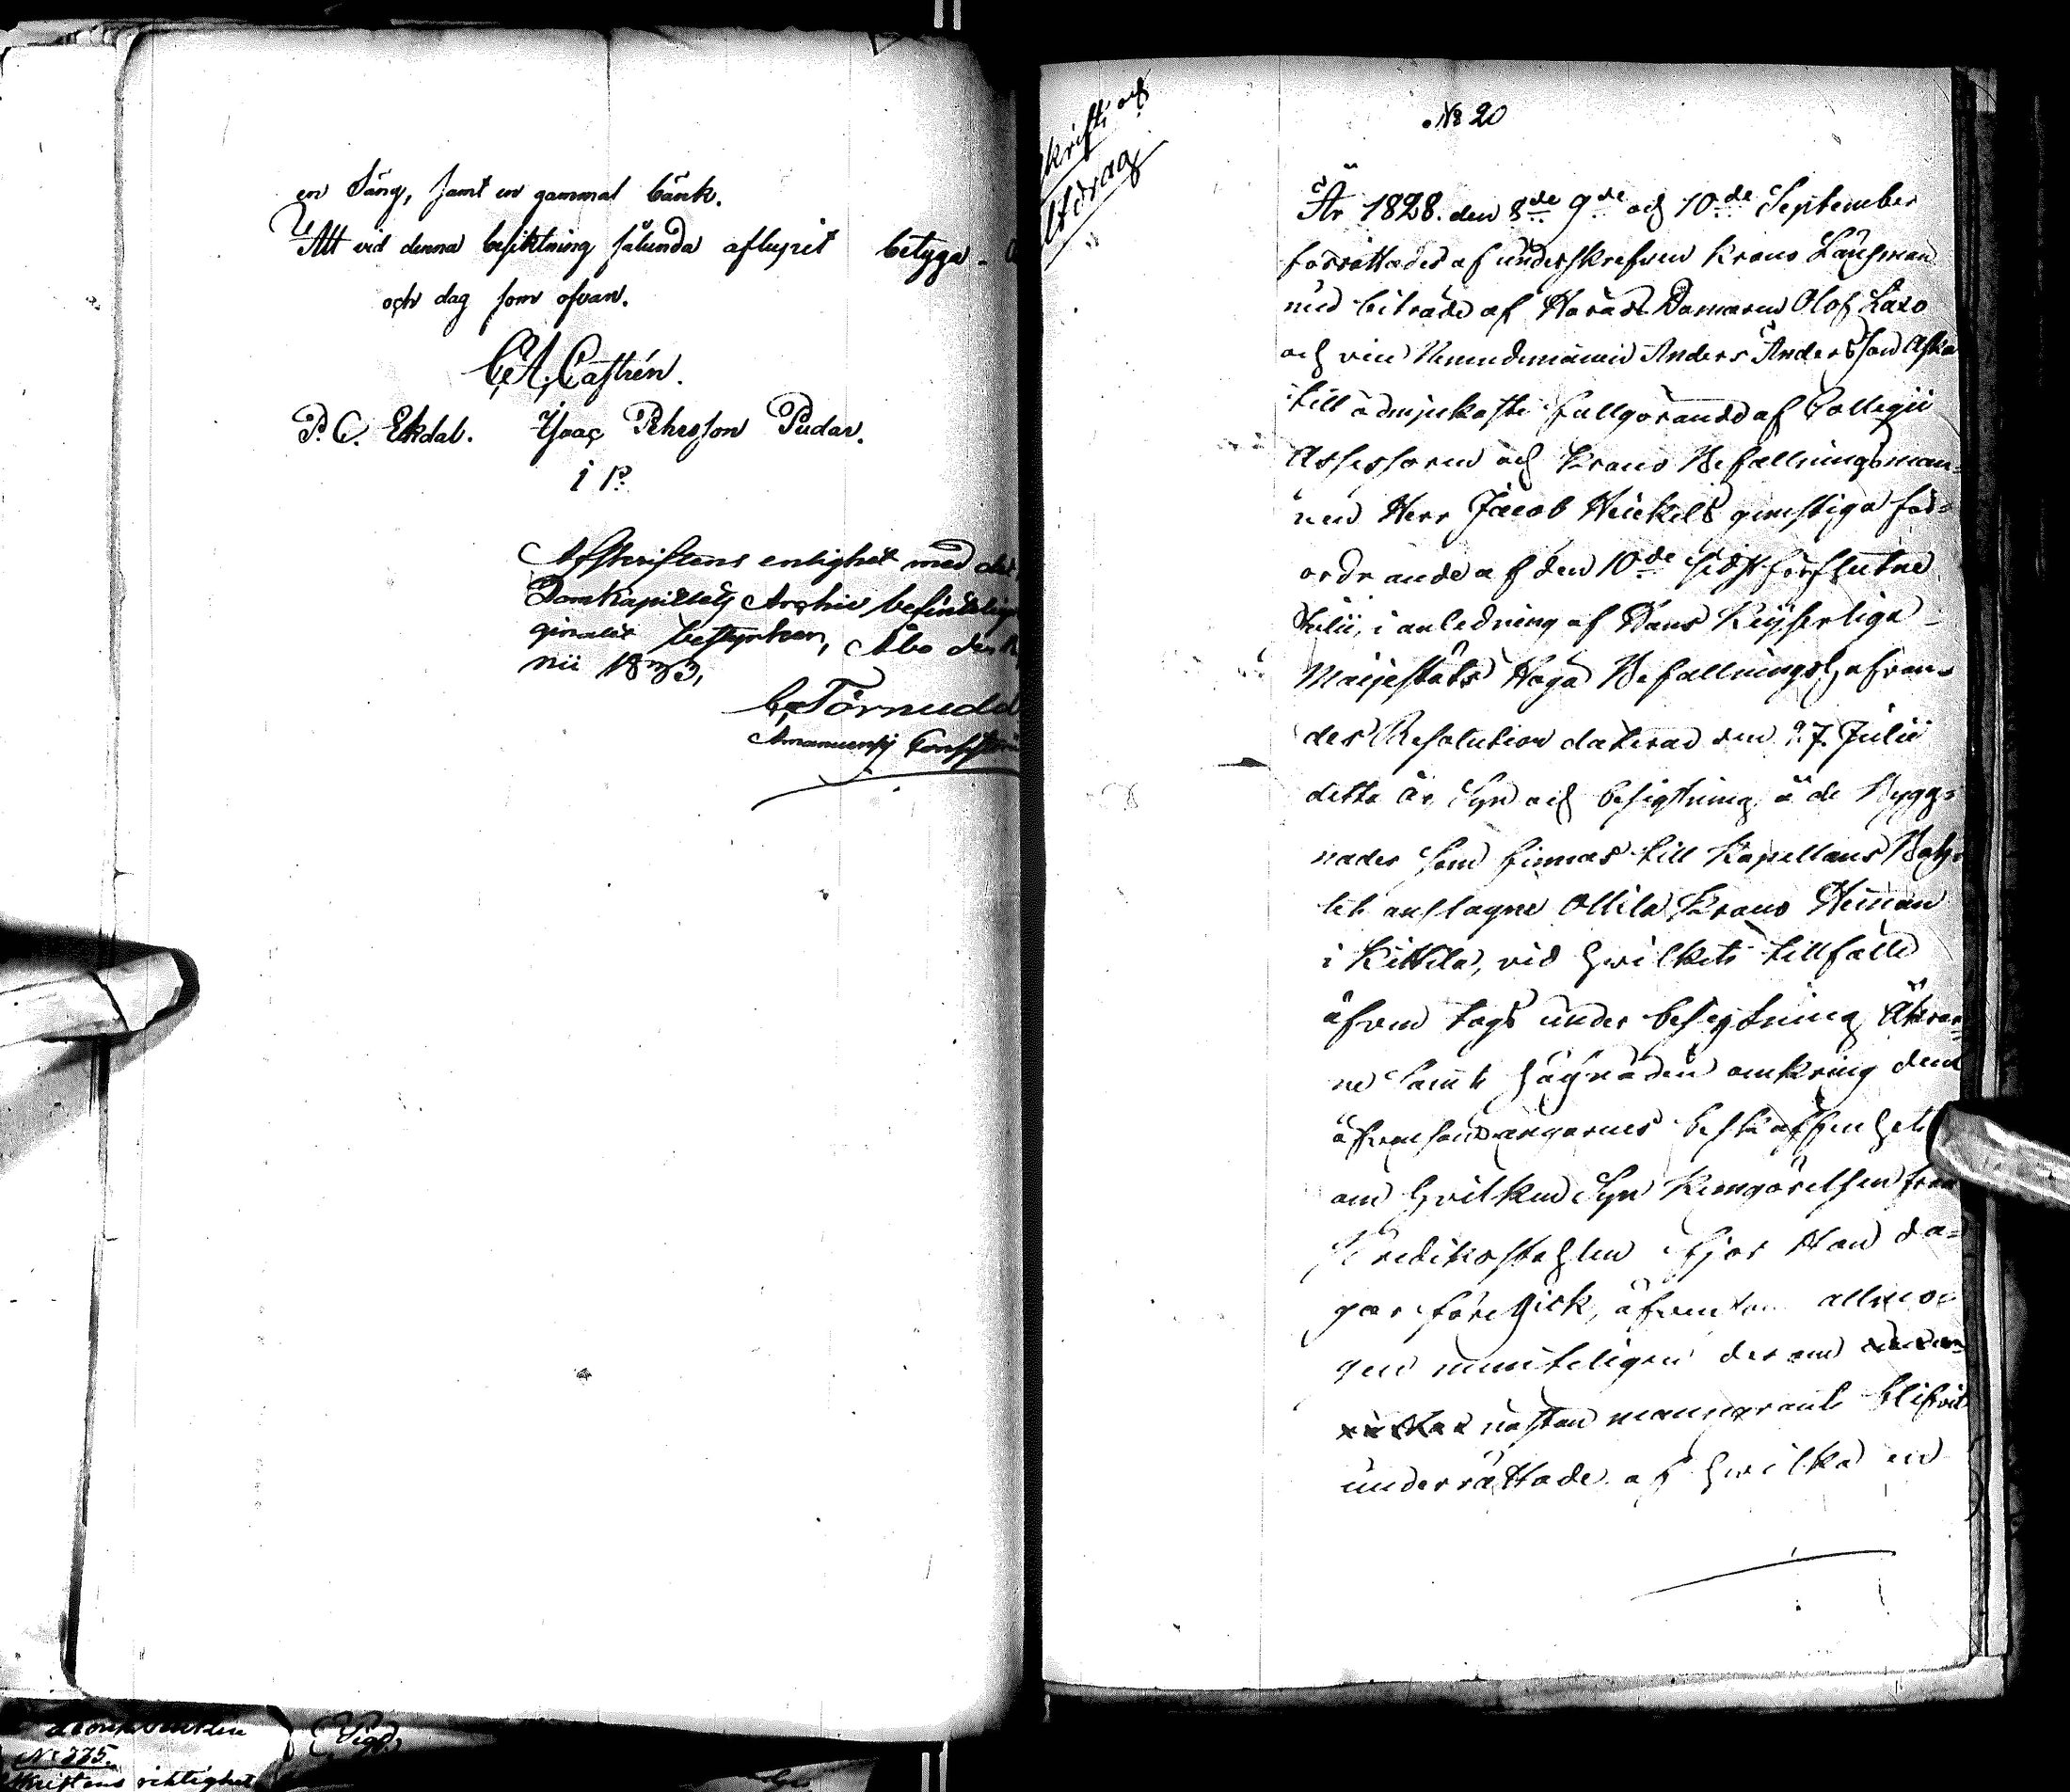 en Säng, samt en gammal bänk.
Att vid denna besiktning sålunda aflupit betyga
och dag som ofvan.
C. A. Castrén.
P. C. Ekdal. Isaac Pehrsson Pudas.
Afskriftens enlighet med det
Domkapitlets Archiv befintelige
ginalet bestyrker, Åbo den
nii 1833,
C. Törnudd
Amanuensis Consistorii
N:o 225.
riktighet
Vigd.
skrift och
Utdrag
No 20
År 1828. den 8de 9de och 10de September
förrättades af underskrefven Krono Länsman
med biträde af Härads Domaren Olof Laxo
och vice Nemndemannen Anders Andersson
till ödmjukaste fullgörande af Collegii
Assessorn och Krono Befallningsman-
nen Herr Jacob Heickels gunstiga för-
ordnande af den 10de sidstförflutne
Julii, i anledning af Hans Kejserliga
Maijestäts Höga Befallningshafvan-
des Resolution daterad den 7. Julii
detta år, Syn och besigtning å de Bygg-
nader som finnas till Kapellans Bohl-
let anslagne Ollila Krono Heman
i Kittila, vid hvilket tillfälle
äfven togs under besigtning Åkrar-
ne samt hägnaden omkring dem
äfvensom ängarnes beskaffenhet
om hvilken Syn kungörelsen från
Prediko stohlen fjorton da-
gar föregick, äfven som allmo-
gen munteligen derom
nästan mangrant blifvit
underrättade af hvilka en